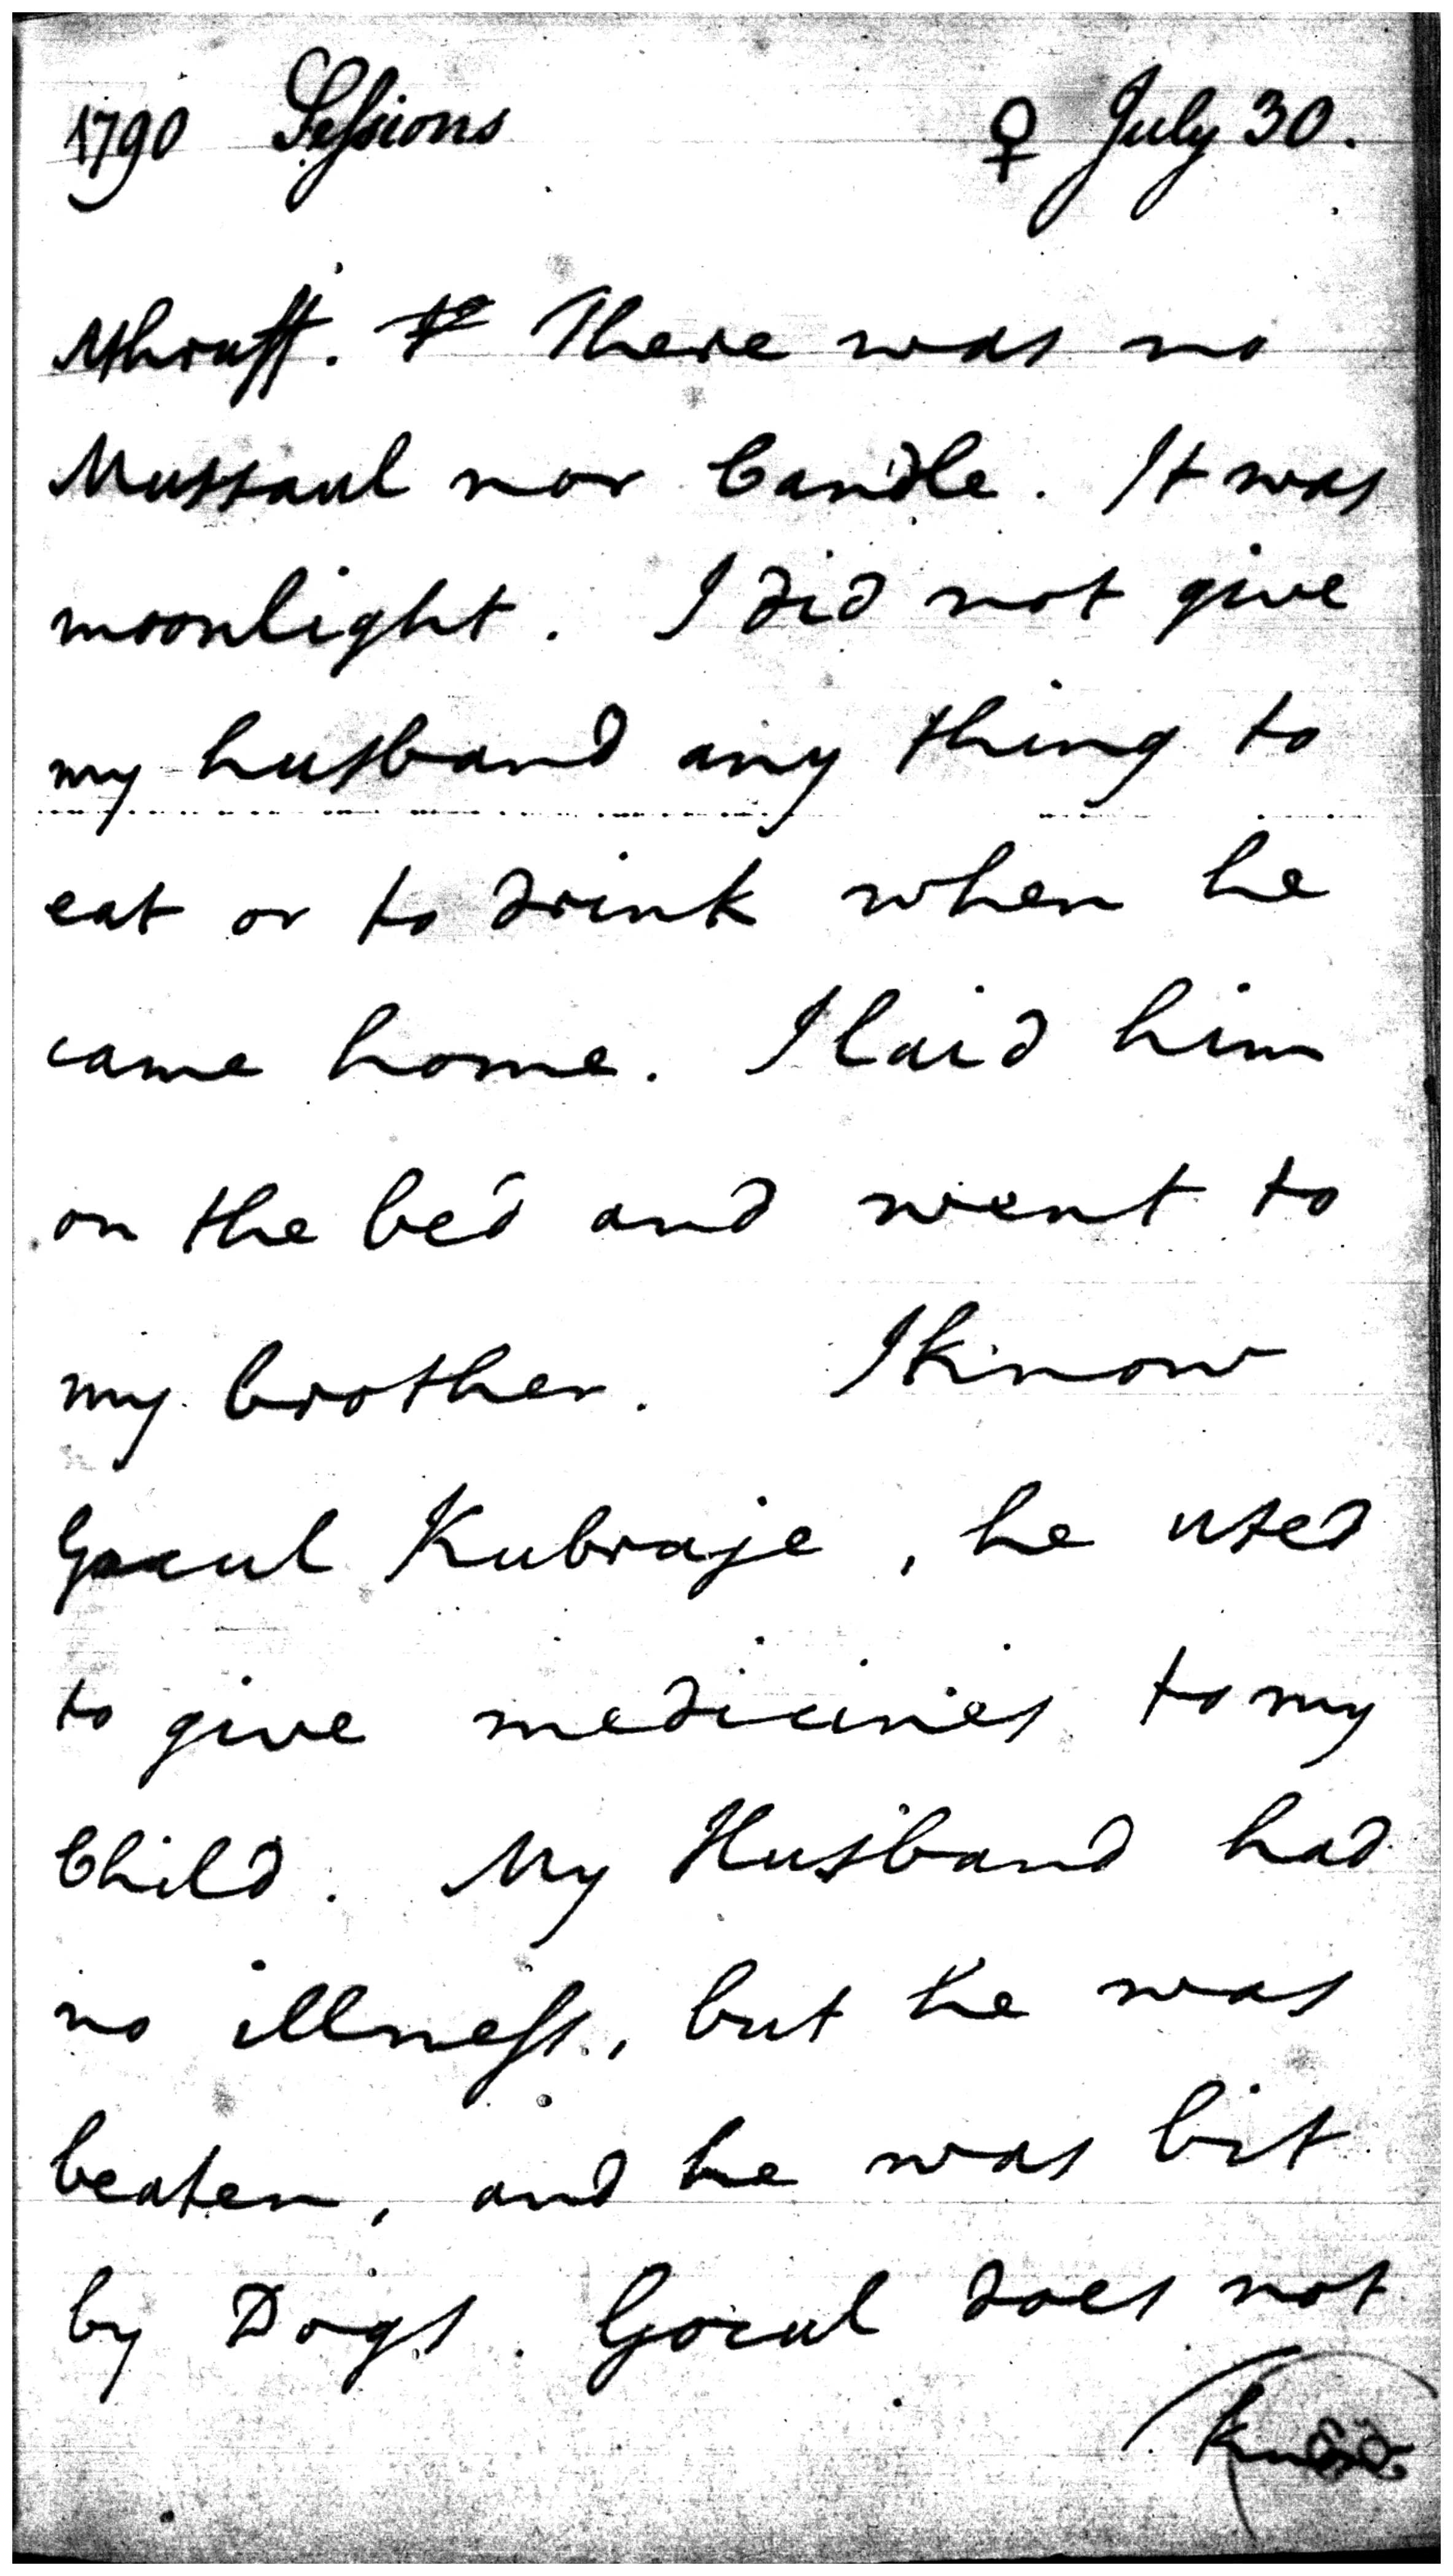 1790 Sessions ♀ July 30.
Athruff. There was no
Mussaul nor Candle. It was
moonlight. I did not give
my husband any thing to
eat or to drink when he
came home. I laid him
on the bed and went to
my brother. I know
Gocul Kubraje, he used
to give medicines to my
Child. My Husband had
no illness, but he was
beaten, and he was bit
by Dogs. Gocul does not